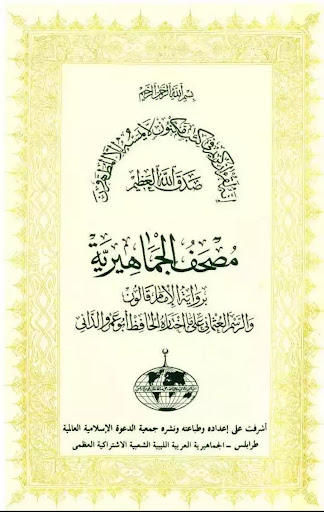 بسم الله الرحمن الرحيم
إنه لقرآن كريم في كتاب مكنون لا يمسه إلا المطهرون
صدق الله العظيم
مصحف الجماهيرية
برواية الإمام قالون
والرسم العثماني على ما اختاره الحافظ أبو عمرو الداني
أشرفت على إعداده وطباعته ونشره جمعية الدعوة الإسلامية العالمية
طرابلس - الجماهيرية العربية الليبية الشعبية الاشتراكية العظمى